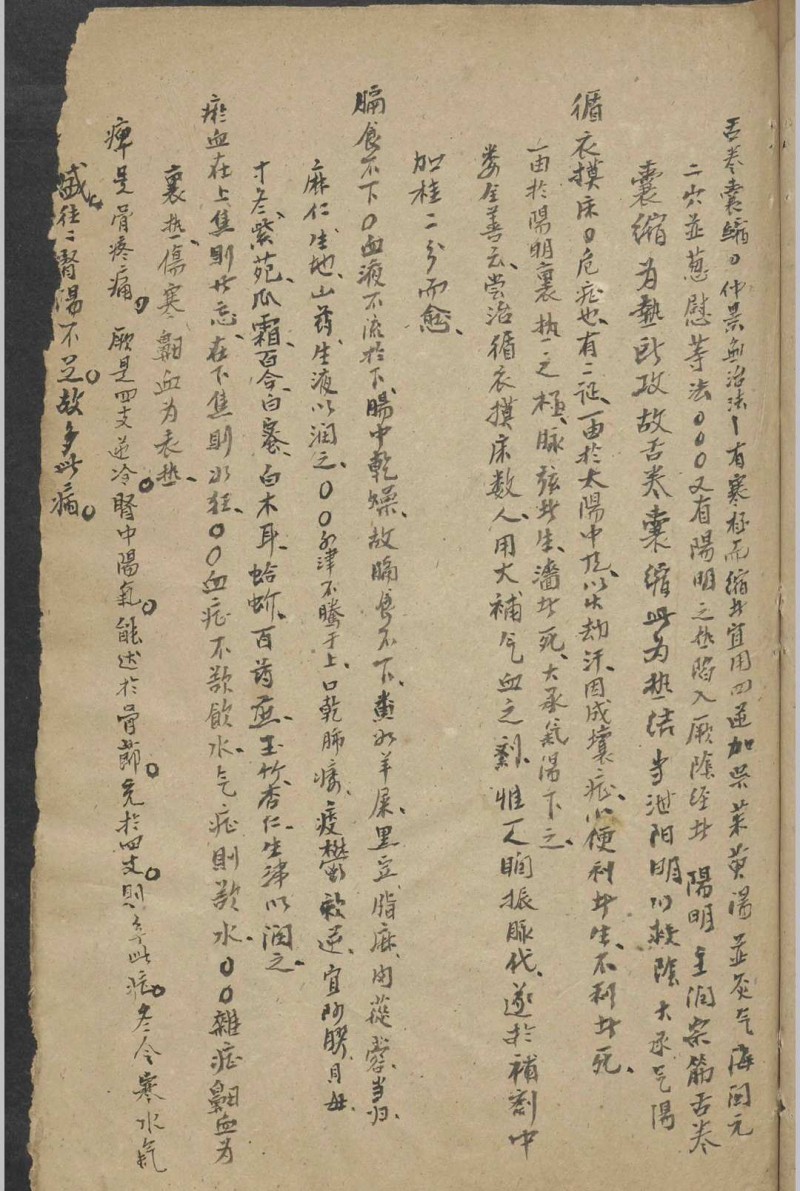 舌卷囊縮〇仲景無治法、有寒極而縮者宜用四逆加吳茱萸湯並灸气海関元
二穴並葱慰等法〇〇〇又有陽明之热陷入厥陰経者 陽明主润宗筋舌卷
囊縮为熱所攻故舌卷囊縮此为热结当泄阳明以救陰大承气湯
循衣摸床〇危症也、有二証、一由於太陽中風、以火劫汗、因成壊症、小便利者生、不利者死、
一由於陽明裏热之極、脉弦者生、濇者死、大承氣湯下之、
娄全善云、尝治循衣摸床数人、用大補气血之剤、惟一人眴振脉代、遂於補剤中
加桂二分而愈、
膈食不下〇血液不流於下、腸中乾燥、故膈食不下、粪如羊屎、黒豆脂麻、肉蓯蓉、当归、
麻仁生地、山药、生液以润之、〇〇若津不騰于上、口乾肺痿、痰鬱欬逆、宜阿膠、貝母、
寸冬、紫苑、瓜霜、百合、白蜜、白木耳、蛤蚧、百药蔗、玉竹、杏仁、生津以润之、
瘀血在上焦則步忘、在下焦則如狂、〇〇血症不欲飲水、气症則欲水、〇〇雜症衄血为
裏热、傷寒衄血为表热、
痺是骨疼痛。厥是四支逆冷。腎中陽氣。能达於骨節。充於四支。則無此症。冬令寒水氣
盛、往二腎陽不足。故多此病。